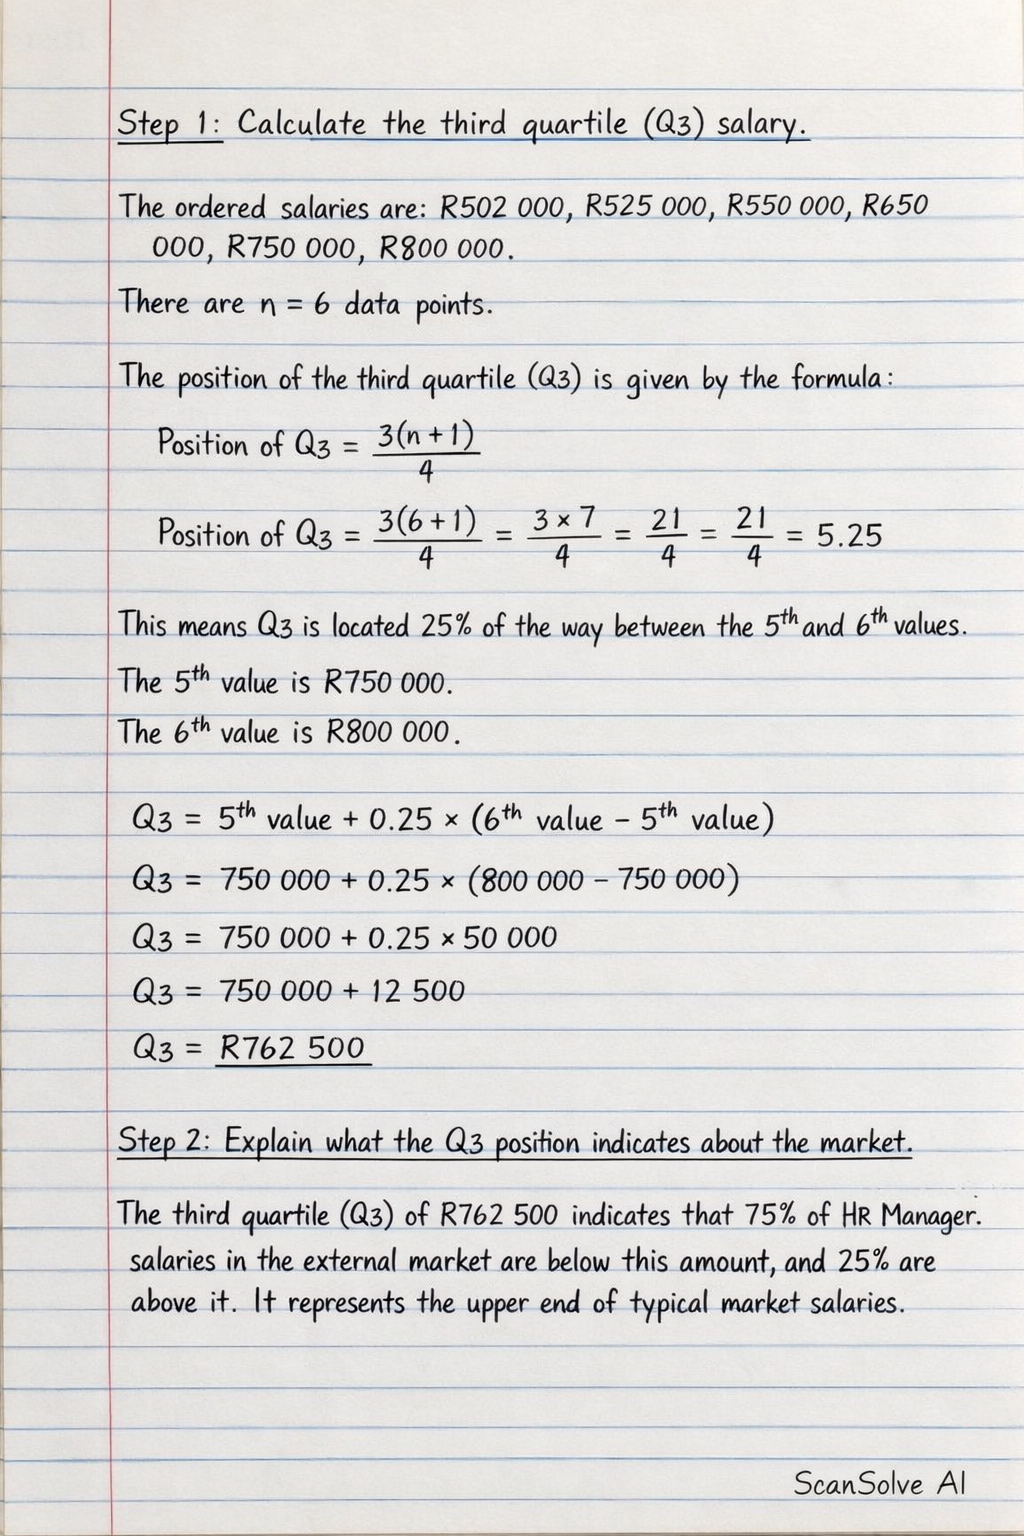 Step 1: Calculate the third quartile (Q3) salary.
The ordered salaries are: R502 000, R525 000, R550 000, R650
000, R750 000, R800 000.
There are n = 6 data points.
The position of the third quartile (Q3) is given by the formula:
Position of Q3 = 3(n + 1) / 4
Position of Q3 = 3(6 + 1) / 4 = 3 × 7 / 4 = 21 / 4 = 21 / 4 = 5.25
This means Q3 is located 25% of the way between the 5th and 6th values.
The 5th value is R750 000.
The 6th value is R800 000.
Q3 = 5th value + 0.25 × (6th value – 5th value)
Q3 = 750 000 + 0.25 × (800 000 – 750 000)
Q3 = 750 000 + 0.25 × 50 000
Q3 = 750 000 + 12 500
Q3 = R762 500
Step 2: Explain what the Q3 position indicates about the market.
The third quartile (Q3) of R762 500 indicates that 75% of HR Manager.
salaries in the external market are below this amount, and 25% are
above it. It represents the upper end of typical market salaries.
ScanSolve AI